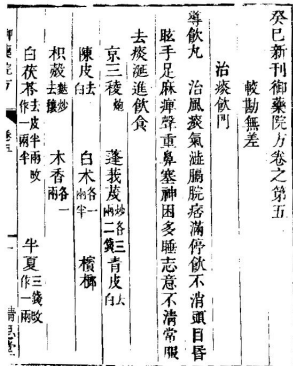 癸巳新刊御藥院方卷之第五
較勘無差
治痰飲門
導飲丸 治風痰氣澁膈脘痞滿停飲不消頭目昏
眩手足麻痺聲重鼻塞神困多睡志意不清常服
去痰涎進飲食
京三稜炮 蓬莪茂炒各三兩二錢 青皮去白
陳皮去白 白朮各一兩半 檳榔
枳殼麩炒去穰 木香各一兩
白茯苓去皮半兩改作一兩半 半夏三錢改作一兩
御藥院方 卷五